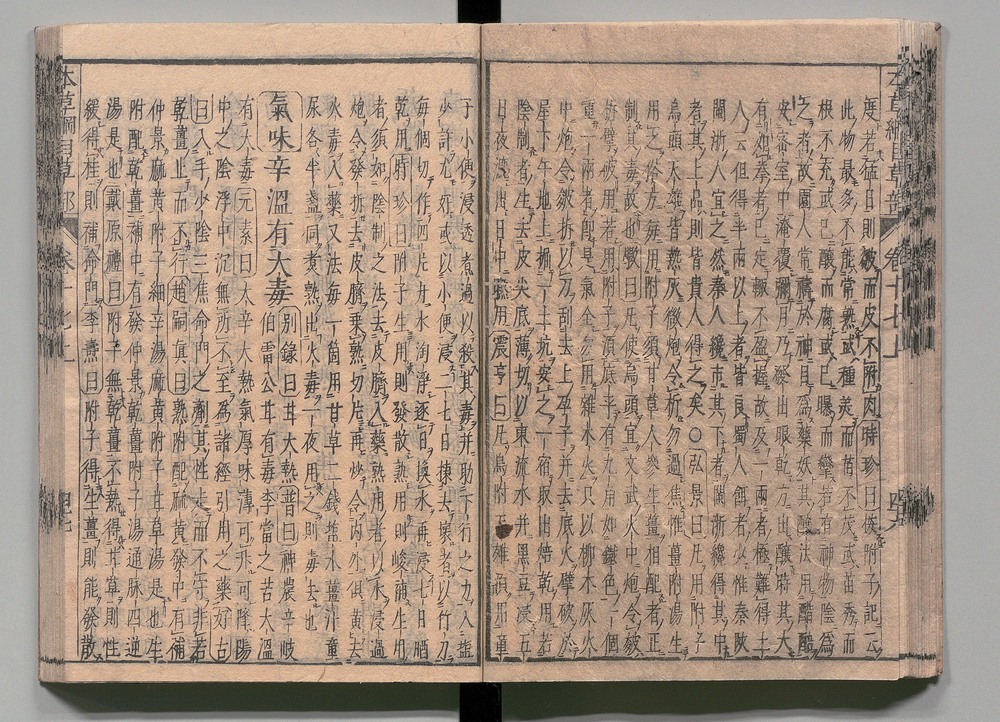 度若猛日則皴而皮不附肉時珍曰侯附子記云
此物最多不能常熟或種美而苗不茂或苗秀而
根不充或已釀而腐或已曝而攣若有神物陰為
之者故園人常禱於神目為藥妖其釀法用醋醅
安密室中淹覆彌月乃發出眼乾方出釀時其大
有如拳者已定輒不盈握故及一兩者極難得土
人云但得半兩以上者皆良蜀人餌者少惟秦陝
閩浙人宜之然秦人纔市其下者閩浙纔得其中
者其上品則皆貴人得之矣○弘景曰凡用附子
烏頭天雄皆熱灰微炮令拆勿過焦惟薑附湯生
用之俗方每用附子須甘草人參生薑相配者正
制其毒故也斅曰凡使烏頭宜文武火中炮令皴
拆擘破用若用附子須底平有九角如鐵色一個
重一兩者即是氣全勿用雜木火只以柳木灰火
中炮令皴拆以刀刮去上孕子并去底尖擘破於
屋下午地上掘一土坑安之一宿取出焙乾用若
陰制者生去皮尖底薄切以東流水并黑豆浸五
日夜漉出日中曬用震亨曰凡烏附天雄須用童
子小便浸透者過以殺其毒并助下行之力入鹽
少許尤好或以小便浸二七日揀去壞者以竹刀
每個切作四片井水淘淨逐日換水再浸七日晒
乾用時珍曰附子生用則發散熟用則峻補生用
者須如陰制之法去皮臍入藥熟用者以水浸過
炮令發拆去皮臍乘熱切片再炒令內外俱黃去
火毒入藥又法每一箇用甘草二錢鹽水薑汁童
尿各半盞同煮熟出火毒一夜用之則毒去也
氣味辛溫有大毒別錄曰甘大熱普曰神農辛岐
伯雷公甘有毒李當之苦大溫
有大毒元素曰大辛大熱氣厚味薄可升可降陽
中之陰浮中沉無所不至為諸經引用之藥好古
曰入手少陰三焦命門之劑其性走而不守非若
乾薑止而不行趙嗣真曰熟附配麻黃發中有補
仲景麻黃附子細辛湯麻黃附子甘草湯是也生
附配乾薑補中有發仲景乾薑附子湯通脉四逆
湯是也戴原禮曰附子無乾薑不熱得甘草則性
緩得桂則補命門李燾曰附子得生薑則能發散